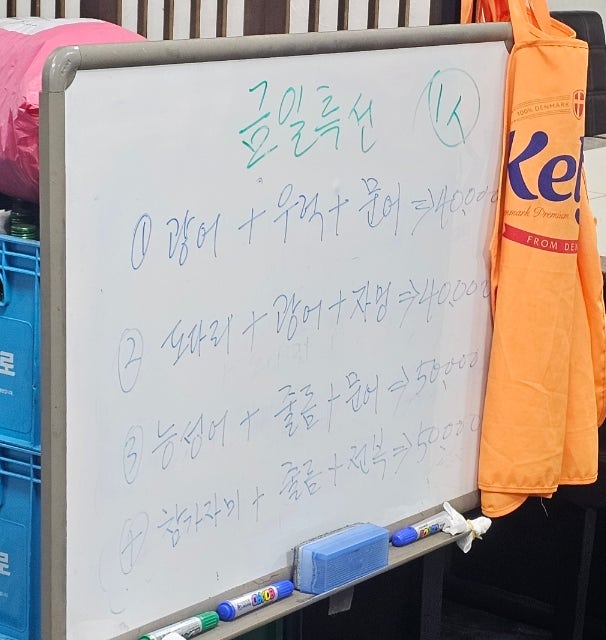 금일특선 11시
① 광어 + 우럭 + 문어 ⇒ 40,000
② 도다리 + 광어 + 자멍 ⇒ 40,000
③ 능성어 + 줄돔 + 문어 ⇒ 50,000
④ 참가자미 + 줄돔 + 전복 ⇒ 50,000
100% DENMARK
Kel
nmark Premium
FROM DEN
로
로